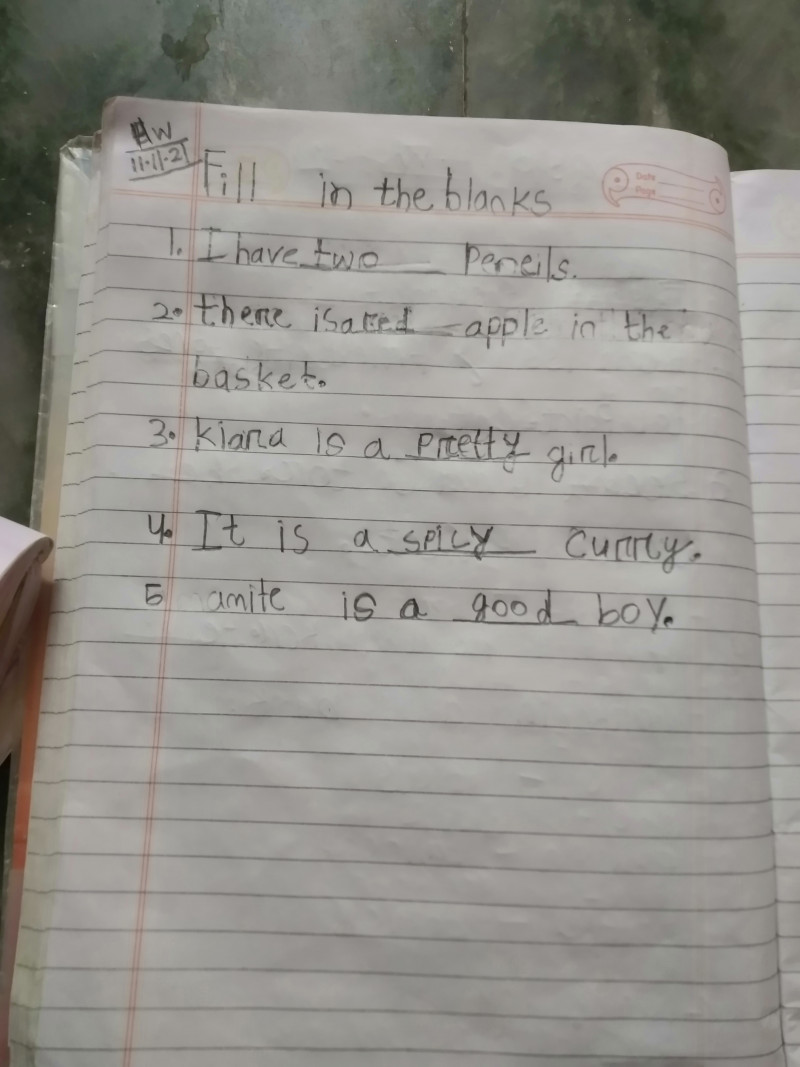 HW
11-11-21
Date
Page
Fill in the blanks
1. I have two pencils.
2. there is a red apple in the
basket.
3. kiara is a pretty girl.
4. It is a spicy curry.
5 amite is a good boy.